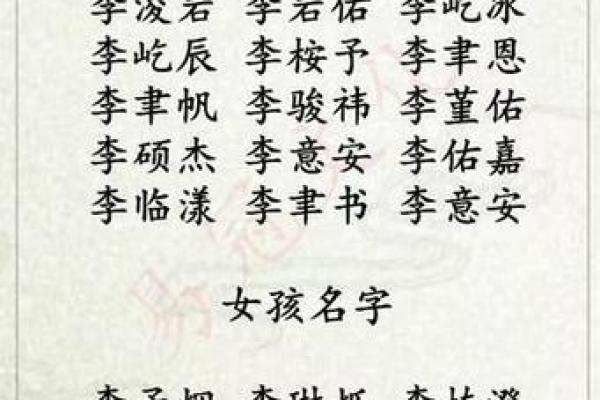 李浚岩 李岩佑 李屹冰
李屹辰 李桉予 李聿恩
李聿帆 李骏祎 李堇佑
李硕杰 李意安 李佑嘉
李临漾 李聿书 李意安
女孩名字
李 李琳 李